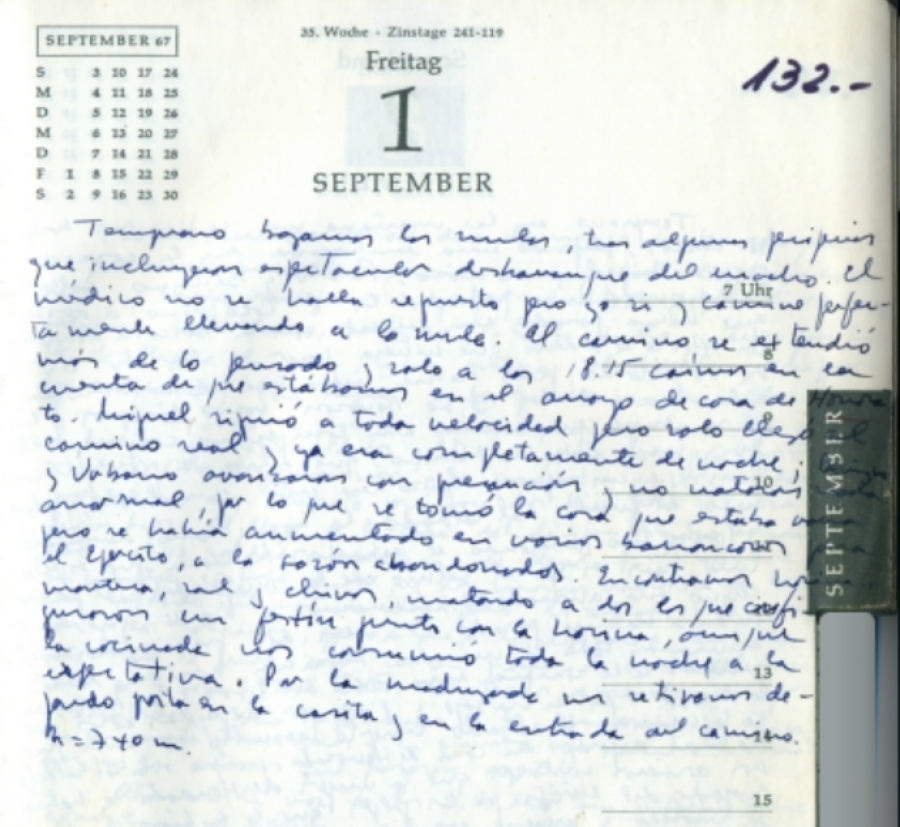 SEPTEMBER 67
35. Woche - Zinstage 241-119
Freitag
1
SEPTEMBER
132.-
S 3 10 17 24
M 4 11 18 25
D 5 12 19 26
M 6 13 20 27
D 7 14 21 28
F 1 8 15 22 29
S 2 9 16 23 30
Temprano bajamos las mulas, tras algunas peripecias
que incluyeron espectacular desbarranque del macho. El
médico no se halla repuesto pero yo si y camino perfec-
tamente llevando a la mula. El camino se extendió
más de lo pensado y solo a las 18.15 caimos en la
cuenta de que estábamos en el arroyo de casa de Honora
to. Miguel siguió a toda velocidad pero solo llegó al
camino real y ya era completamente de noche;
y Urbano avanzaron con precaución y no notaron nada
anormal, por lo que se tomó la casa que estaba vacia
pero se habia aumentado en varios barracones para
el Ejército, a la sazón abandonados. Encontramos harina,
manteca, sal y chivos, matando a dos los que confi
guraron un festin junto con la harina, aunque
la cocinada nos consumió toda la noche a la
expectativa. Por la madrugada nos retiramos de-
jando posta en la casita y en la entrada del camino.
h=740 m.
7 Uhr
8
9
10
13
14
15
SEPTEMBER